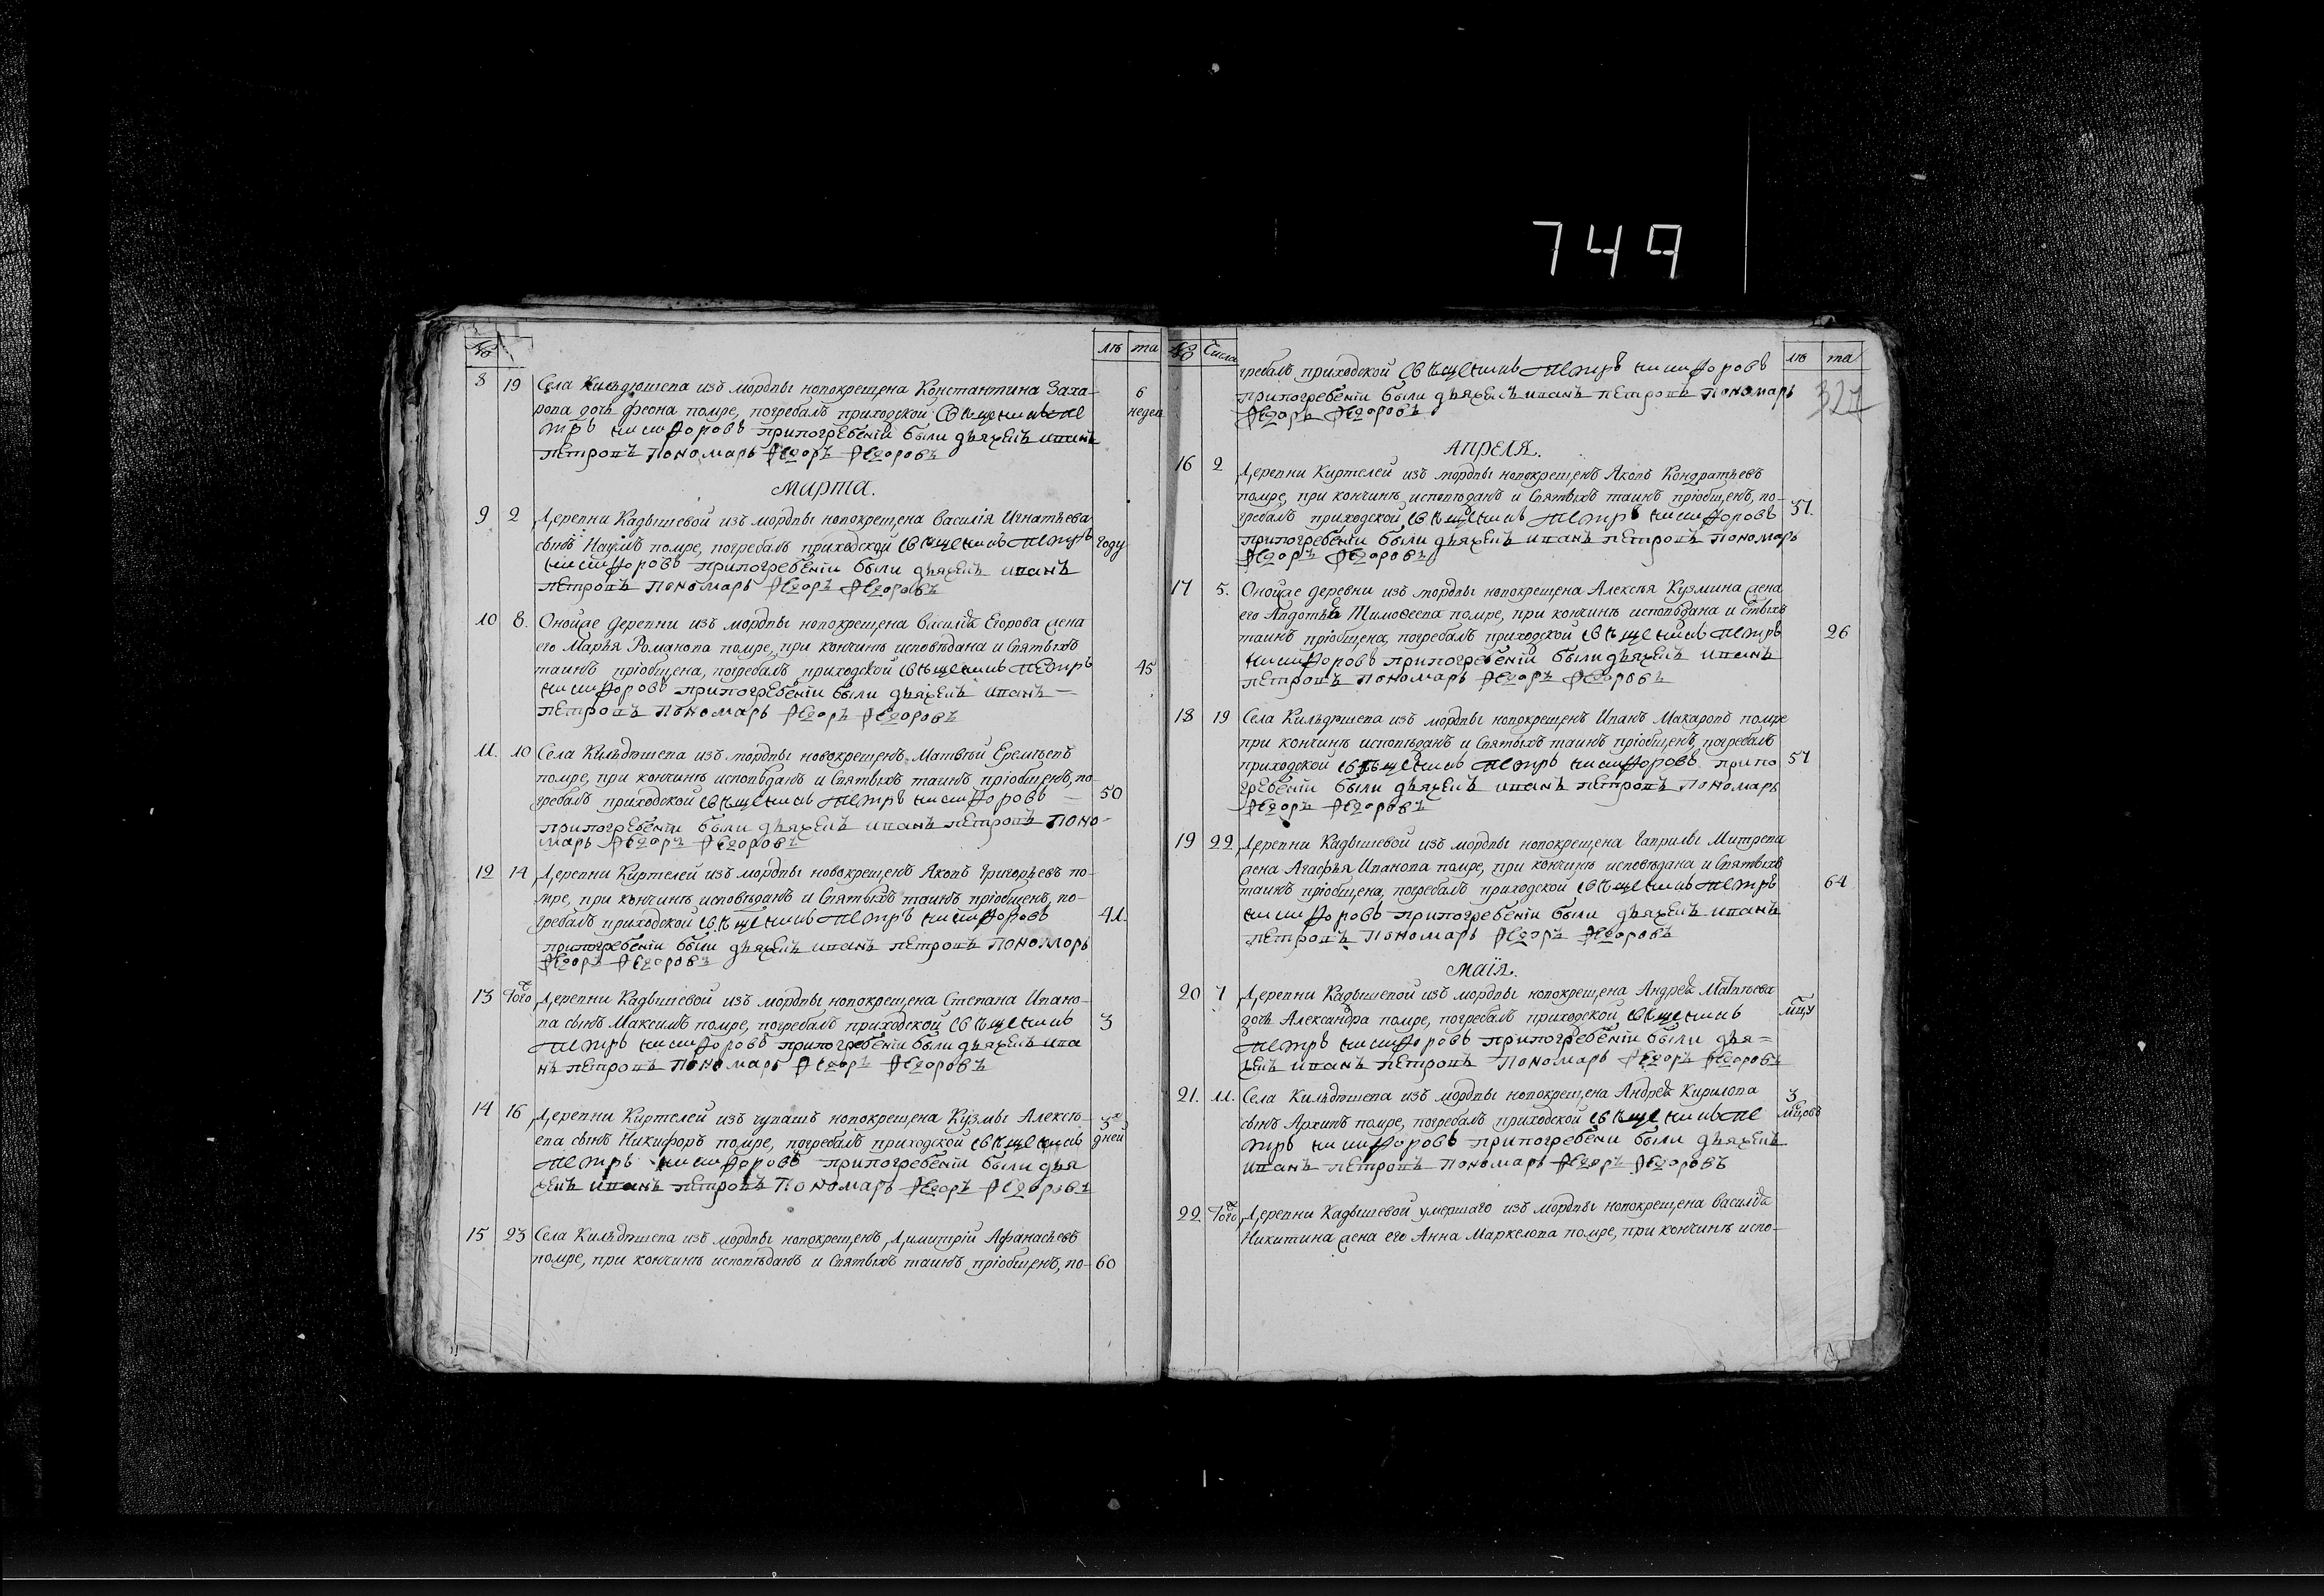 749
№ лѣ та
8 19 Села Кильдюшева изъ мордвы новокрещена Константина Заха- 6
рова дочь Феона помре, погребалъ приходской священникъ Пе недел
тръ никифоровъ припогребеніи были дьячекъ иванъ
петровъ пономарь Феодоръ Феодоровъ
Марта.
9 2 Деревни Кадышевой изъ мордвы новокрещена Василія Игнатьева
сынъ Наумъ помре, погребалъ приходской священникъ Петръ году
никифоровъ припогребеніи были дьячекъ иванъ
петровъ пономарь Феодоръ Феодоровъ
10 8. Онойже деревни изъ мордвы новокрещена Василья Егорова жена
его Марья Романова помре, при кончинѣ исповѣдана и Святыхъ
таинъ пріобщена, погребалъ приходской священникъ Петръ 45
никифоровъ припогребеніи были дьячекъ иванъ
петровъ пономарь Феодоръ Феодоровъ
11. 10 Села Кильдюшева изъ мордвы новокрещенъ Матвѣй Еремѣевъ
помре, при кончинѣ исповѣданъ и Святыхъ таинъ пріобщенъ, по-
гребалъ приходской священникъ Петръ никифоровъ 50
припогребеніи были дьячекъ иванъ петровъ поно-
марь Феодоръ Феодоровъ
12 14 Деревни Киртелей изъ мордвы новокрещенъ Яковъ Григорьевъ по-
мре, при кончинѣ исповѣданъ и Святыхъ таинъ пріобщенъ, по-
гребалъ приходской священникъ Петръ никифоровъ 41.
припогребеніи были дьячекъ иванъ петровъ пономарь
Феодоръ Феодоровъ
13 Тогож Деревни Кадышевой изъ мордвы новокрещена Степана Ивано-
ва сынъ Максимъ помре, погребалъ приходской священникъ 3
Петръ никифоровъ припогребеніи были дьячекъ ива
нъ петровъ пономарь Феодоръ Феодоровъ
14 16 Деревни Киртелей изъ чувашъ новокрещена Кузмы Алексѣ- 5
ева сынъ Никифоръ помре, погребалъ приходской священникъ дней
Петръ никифоровъ припогребеніи были дья
чекъ иванъ петровъ пономарь Феодоръ Феодоровъ
15 23 Села Кильдюшева изъ мордвы новокрещенъ Димитрій Афанасьевъ
помре, при кончинѣ исповѣданъ и Святыхъ таинъ пріобщенъ, по- 60
№ Числа лѣ та
гребалъ приходской священникъ Петръ никифоровъ
припогребеніи были дьячекъ иванъ петровъ пономарь 327
Феодоръ Феодоровъ
Апреля.
16 2 Деревни Киртелей изъ мордвы новокрещенъ Яковъ Кондратьевъ
помре, при кончинѣ исповѣданъ и Святыхъ таинъ пріобщенъ, по-
гребалъ приходской священникъ Петръ никифоровъ 51.
припогребеніи были дьячекъ иванъ петровъ пономарь
Феодоръ Феодоровъ
17 5. Онойже деревни изъ мордвы новокрещена Алексѣя Кузмина жена
его Авдотья Тимовеева помре, при кончинѣ исповѣдана и стыхъ
таинъ пріобщена, погребалъ приходской священникъ Петръ 26
никифоровъ припогребеніи были дьячекъ иванъ
петровъ пономарь Феодоръ Феодоровъ
18 19 Села Кильдюшева изъ мордвы новокрещенъ Иванъ Макаровъ помре
при кончинѣ исповѣданъ и Святыхъ таинъ пріобщенъ, погребалъ
приходской священникъ Петръ никифоровъ припо 57
гребеніи были дьячекъ иванъ петровъ пономарь
Феодоръ Феодоровъ
19 22 Деревни Кадышевой изъ мордвы новокрещена Гаврилы Митрева
жена Агафья Иванова помре, при кончинѣ исповѣдана и Святыхъ
таинъ пріобщена, погребалъ приходской священникъ Петръ 64
никифоровъ припогребеніи были дьячекъ иванъ
петровъ пономарь Феодоръ Феодоровъ
Маія.
20 7 Деревни Кадышевой изъ мордвы новокрещена Андрея Матвѣева
дочь Александра помре, погребалъ приходской священникъ мцу
Петръ никифоровъ припогребеніи были дья=
чекъ иванъ петровъ пономарь Феодоръ Феодоровъ
21. 11. Села Кильдюшева изъ мордвы новокрещена Андрея Кирилова 3
сынъ Архипъ помре, погребалъ приходской священникъ Пе мцовъ
тръ никифоровъ припогребени были дьячекъ
иванъ петровъ пономарь Феодоръ Феодоровъ
22 Тогож Деревни Кадышевой умершаго изъ мордвы новокрещена Василья
Никитина жена его Анна Маркелова помре, при кончинѣ испо-